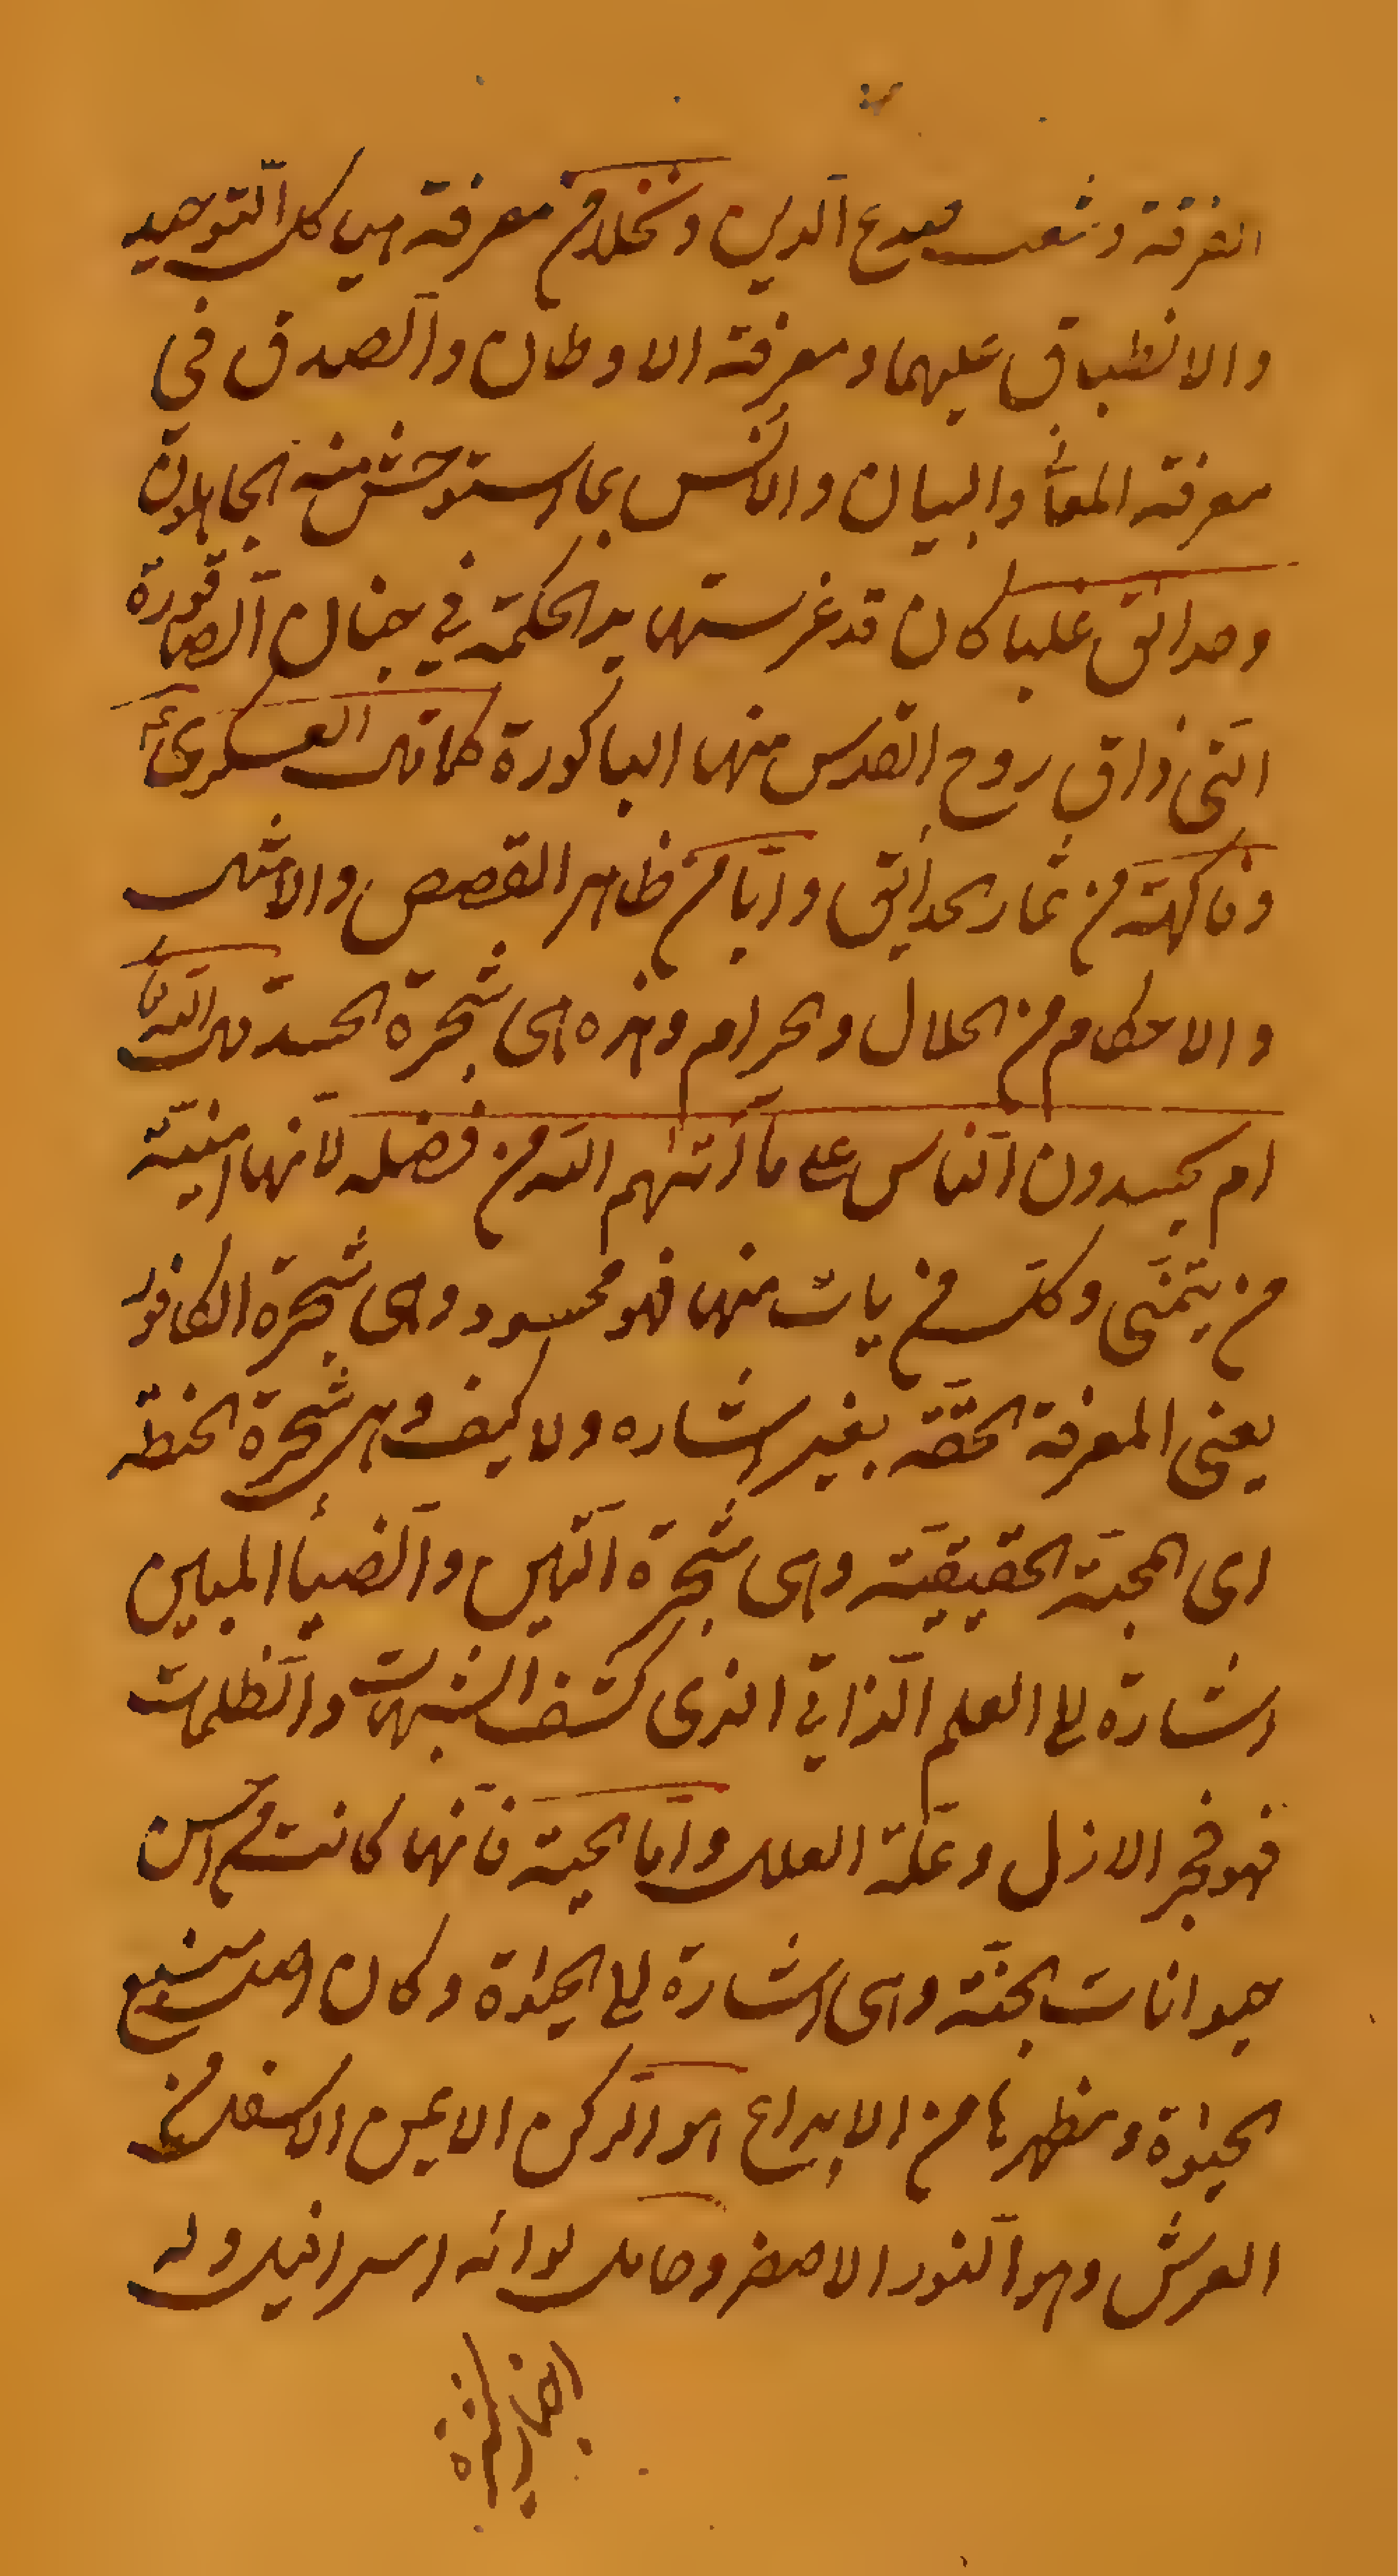 الفرقة وشعب صدع الدين ونخلا من معرفة هياكل التوحيد
والانطباق عليهما ومعرفة الاوطان والصدق في
معرفة المعانى والبيان والانس بما استوحش منه الجاهلون
وحدائق غلبا كان قد غرستها يد الحكمة في جنان الصاقورة
التى ذاق روح القدس منها الباكورة كما قال العسكرى ع
وفاكهة من ثمار الحدائق وابا من ظاهر القصص والامثال
والاحكام من الحلال والحرام وهذه هى شجرة الحسد قال الله تعا
ام يحسدون الناس على ما آتيهم الله من فضله لانها امنية
من يتمنى وكل من يات منها فهو محسود وهى شجرة الكافور
يعنى المعرفة الحقة بغير اشاره ولا كيف وهى شجرة الحنطة
اى المحبة الحقيقية وهى شجرة التين والضياء المبين
اشارة الى العلم الذاتي الذى كشف الشبهات والظلمات
فهو فجر الازل وعلة العلل واما الحية فانها كانت من احسن
حيوانات الجنة وهى اشارة الى الحيوة وكان اصل منبع
الحيوة ومظهرها من الابداع هو الركن الايمن الاسفل من
العرش وهو النور الاصفر وحامل لوائه اسرافيل وله